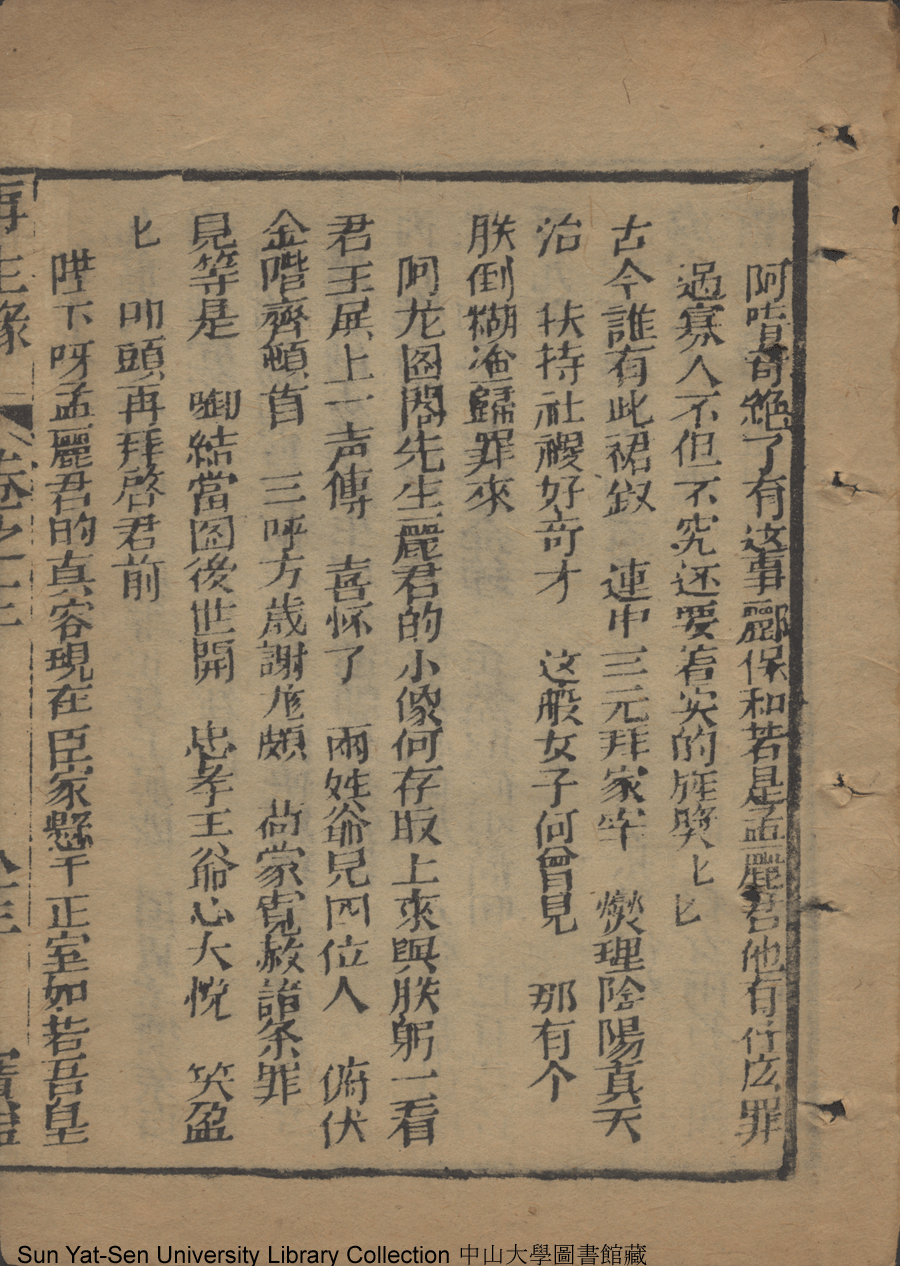 阿唷奇絶了有这事酈保和若是孟麗君他有什庅罪
過寡人不但不究还要着实的旌奬匕匕
古今誰有此裙釵　連中三元拜家宰　燮理陰陽真天
治　扶持社稷好奇才　这般女子何曾見　那有个
朕倒糊塗歸罪來
阿龙圖閣先生麗君的小像何存取上來與朕躬一看
君王展上一声傳　喜怀了　兩姓爺兒四位人　俯伏
金階齊頓首　三呼万歲謝龙顏　尚蒙寬赦諸条罪
見等是　啣結當圖後世開　忠孝王爺心大悅　笑盈
匕　叩頭再拜啓君前
陛下呀孟麗君的真容現在臣家懸于正室如若吾皇
再生緣　卷之十
Sun Yat-Sen University Library Collection 中山大學圖書館藏